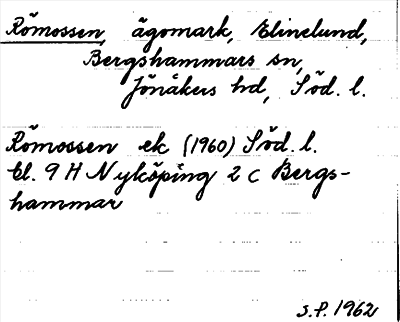 Römossen, ägomark, Elinelund,
Bergshammars sn,
Jönåkers hd, Söd. l.
Römossen ek (1960) Söd. l.
bl. 9 H Nyköping 2 c Bergs-
hammar
S.P. 1962